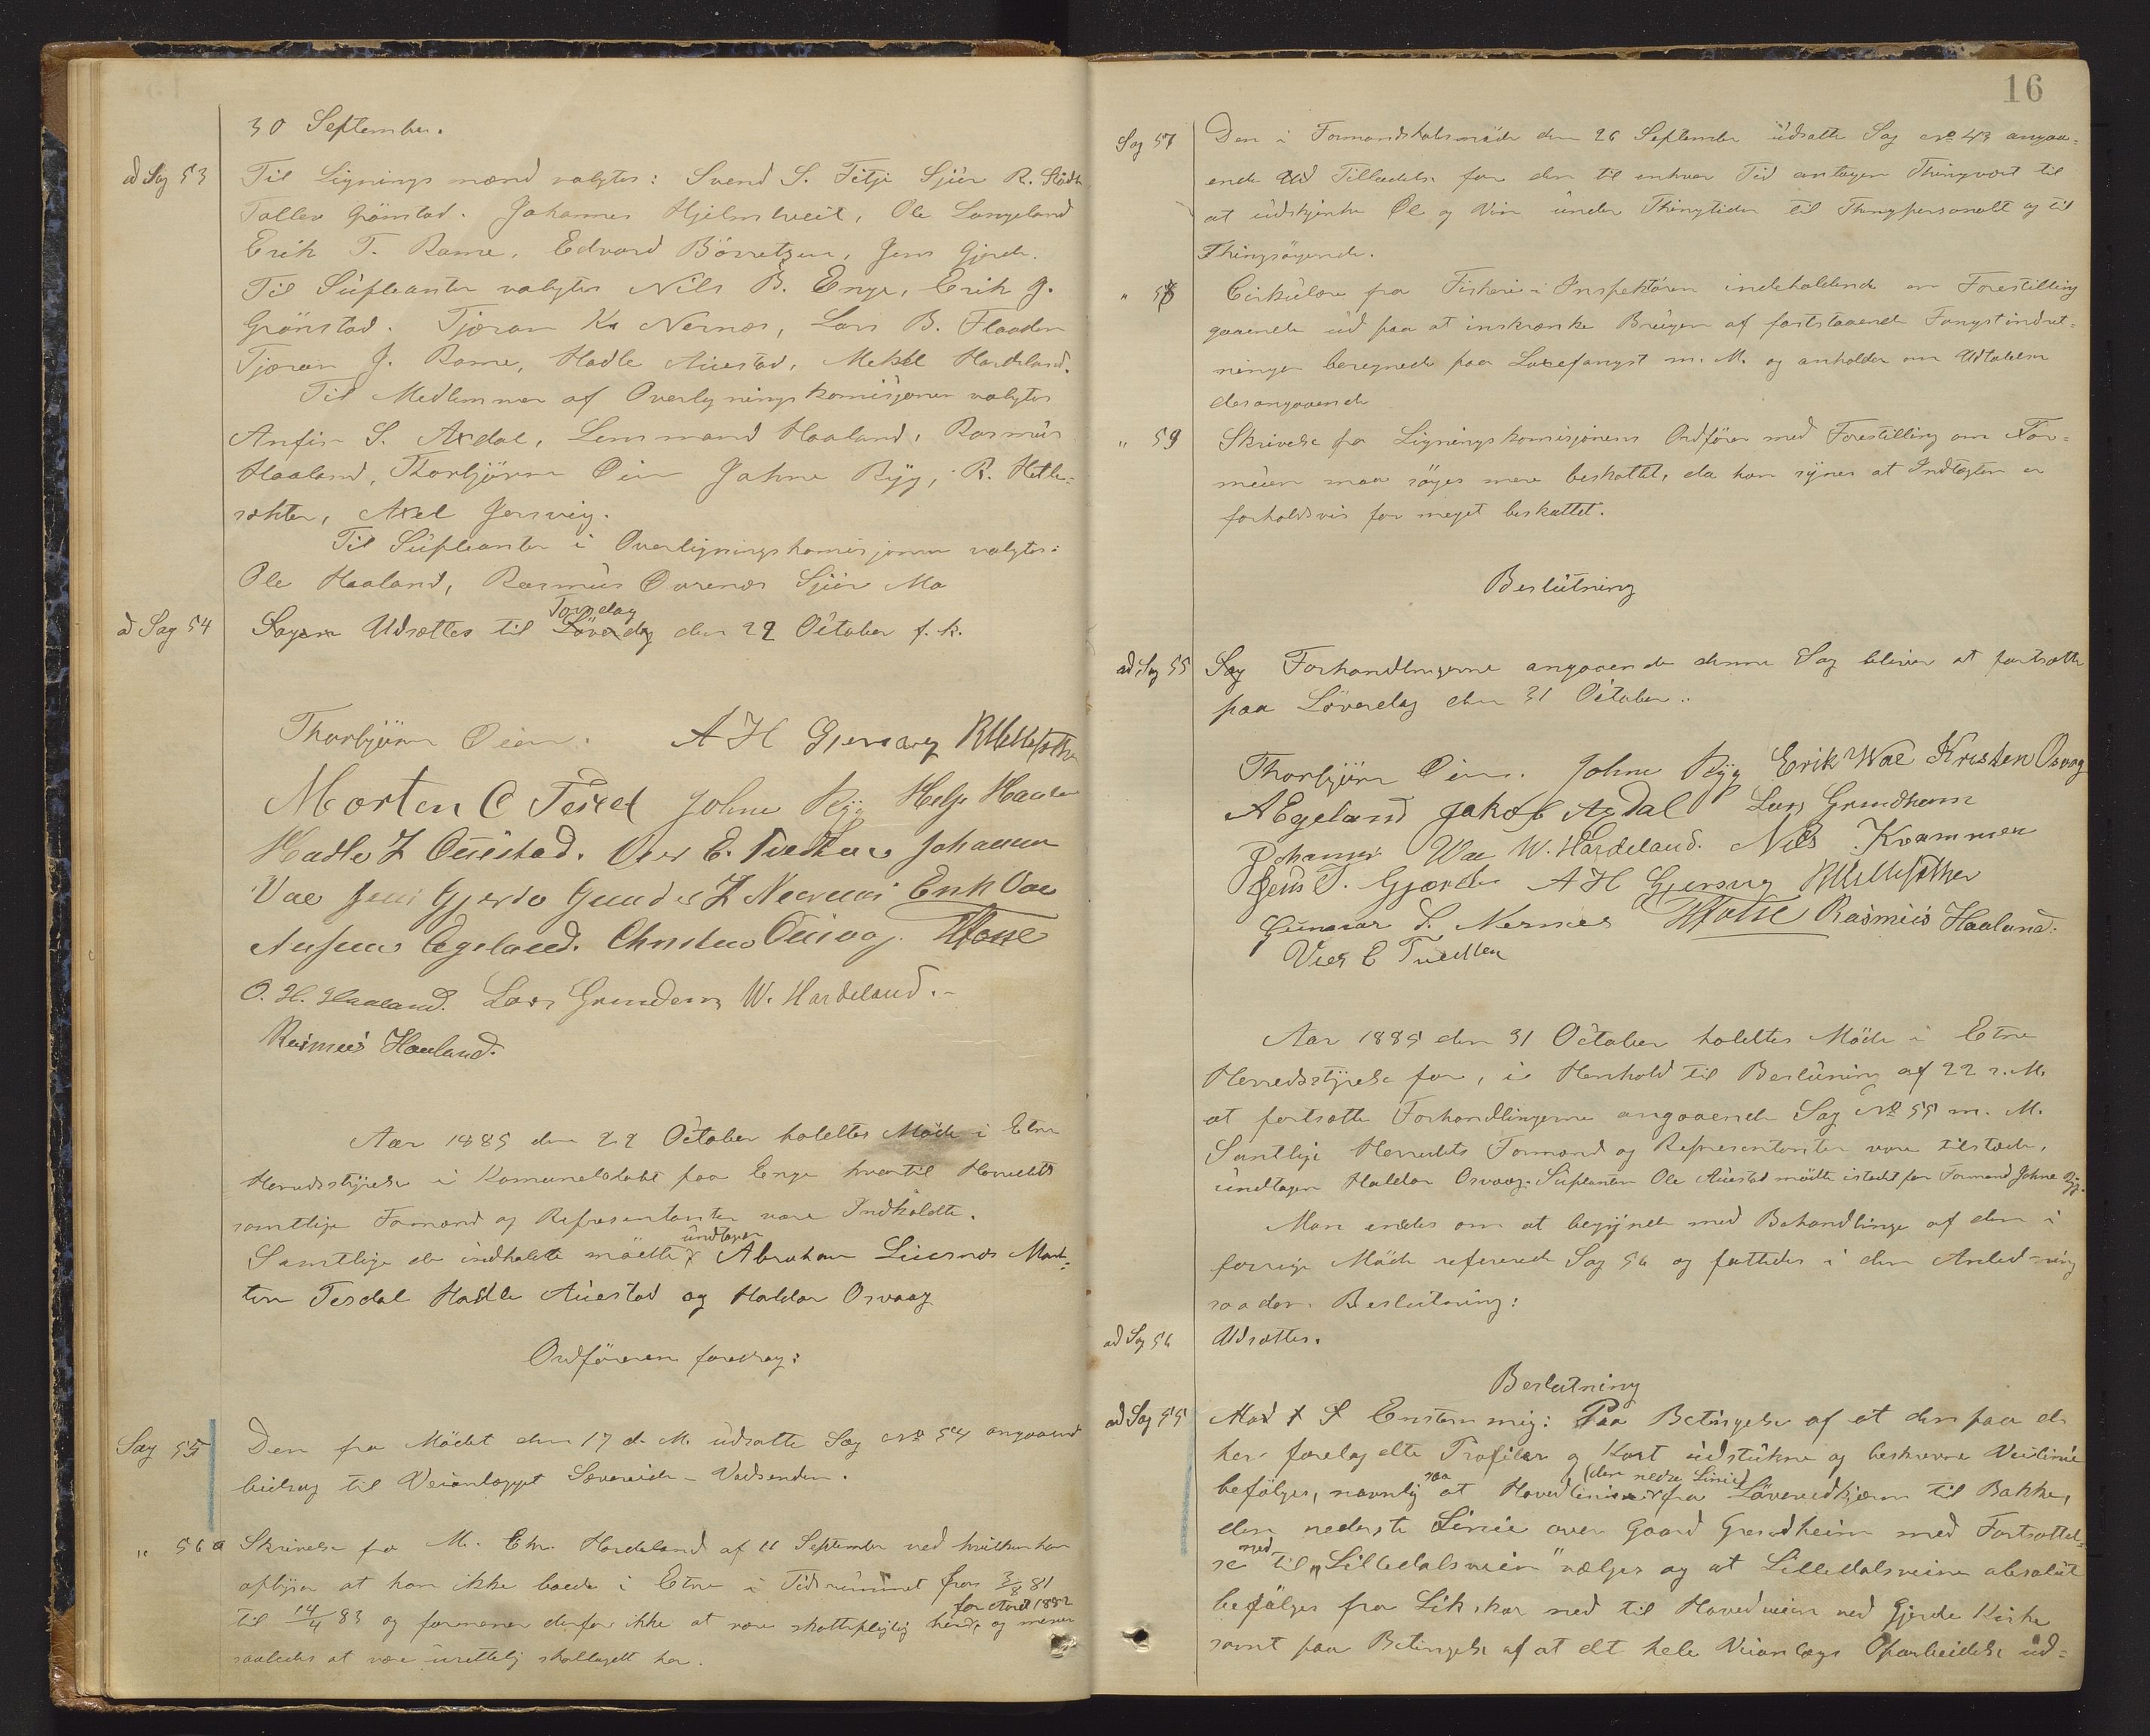 30 September.
ad Sag 53 Til Ligningsmænd valgtes: Svend S. Tetje Sjur R.
Tollev Grønstad. Johannes Hjelmtveit, Ole Langeland
Erik T. Rame, Edvard Börretzen, Jens Gjerde.
Til Supleanter valgtes Nils B. Enge, Erik J.
Grönstad. Tjæran K. Nernæs, Lars B. Flaaden
Tjæran J. Rame, Hadle Auestad, Mekkel Hardeland.
Til Medlemmer af Overligningskomisjonen valgtes
Anfin S. Axdal, Lensmand Haaland, Rasmus
Haaland, Thorbjörn Øien Johne Ryg, R. Hetle=
sæhter, Axel Jersvig.
Til Supleanter i Overligningskomisjonen valgtes:
Ole Haaland, Rasmus Øvrenæs Sjur Mo
Torsdag
ad Sag 54 Sagen Udsættes til Löverdag den 22 October f. k.
Thorbjörn Øien. A H Gjersvig R Hetlesæther
Morten C Tesdal Johne Ryg Helge Haaland
Hadle J Auestad. Vier E. Tvedten Johannes
Vae Jens Gjerde Gunder J Nernæs Erik Vae
Ansten Egeland. Christen Ousvog. Tofte
O. H. Haaland. Lars Grindem W. Hardeland.-
Rasmus Haaland.
Aar 1885 den 22 October holdtes Möde i Etne
Herredsstyrelse i Komunelokalet paa Enge hvortil Herredets
samtlige Formænd og Representanter vare Indkaldte.
undtagen
Samtlige de indkaldte mödte Abraham Liernæs Mor=
ten Tesdal Hadle Auestad og Haldor Osvaag
Ordföreren foredrog:
Sag 55 Den fra Mödet den 17 d. M. udsatte Sag No 54 angaaend
bidrag til Veianlægget Sævereide - Vadsenden.
" 56 a Skrivelse fra M. Chr. Hardeland af 11 September ved hvilken han
oplyser at han ikke boede i Etne i Tidsrummet fra 3/8 81
for Aaret 1882
til 14/4 83 og formener derfor ikke at være skattepligtig herid, og mener
saaledes at være urettelig skatlagt her.
16
Sag 57 Den i Formandskabsmöde den 26 September udsatte Sag No 43 angaa=
ende Tilladelse for den til enhver Tid antagen Thingvært til
at udskjenke Öl og Vin under Thingtiden til Thingpersonalet og til
Thingsögende.
" 58 Cirkulære fra Fiskeri-Inspektören indeholdende en Forestilling
gaaende ud paa at inskrænke Brugen af faststaaende Fangstindret=
ninger beregnede paa Laxefangst m. M. og anholder om Udtalelse
desangaaende
" 59 Skrivelse fra Ligningskomisjonens Ordförer med Forestilling om For=
muen maa söges mere beskattet, da han synes at Indtægten er
forholdsvis for meget beskattet.
Beslutning
ad Sag 55 Sag Forhandlingerne angaaende denne Sag bliver at fortsætte
paa Löverdag den 31 October.
Thorbjörn Øien. Johne Ryg Erik Wae Kristen Osvog
A Egeland Jakob Axdal Lars Grindheim
Johannes Wae W. Hardeland. Nils Kvammen
Jens T. Gjærde A H Gjersvig R Hetlesæther
Gunnar S. Nernæs Tofte Rasmus Haaland.
Vier E Tvedten
Aar 1885 den 31 October holdtes Möde i Etne
Herredsstyrelse for, i Henhold til Beslutning af 22 s. M.
at fortsætte Forhandlingerne angaaende Sag No 55 m. M.
Samtlige Herredets Formænd og Representanter vare tilstede,
undtagen Haldor Osvaag. Supleanten Ole Auestad mödte istedet for Formand Johne Ryg.
Man enedes om at begynde med Behandlinge af den i
forrige Möde refererede Sag 56 og fattedes i den Anled-ning
saadan Beslutning:
ad Sag 56 Udsættes.
Beslutning
ad Sag 55 Mod 1 S Enstemmig: Paa Betingelse af at den paa de
her forelagdte Profiler og Kart udstukne og beskrevne Veilinie
saa (den nedre Linie)
befölges, navnlig at Hovedlinien fra Löverædkjærn til Bakke,
den nederste Linie over Gaard Grindheim med Fortsættel=
ned
se til "Lilledalsveien" vælges og at Lilledalsveien absolut
befölges fra Likskar ned til Hovedveien ved Gjerde Kirke
samt paa Betingelse af at det hele Veianlægs Oparbeidelse ud=